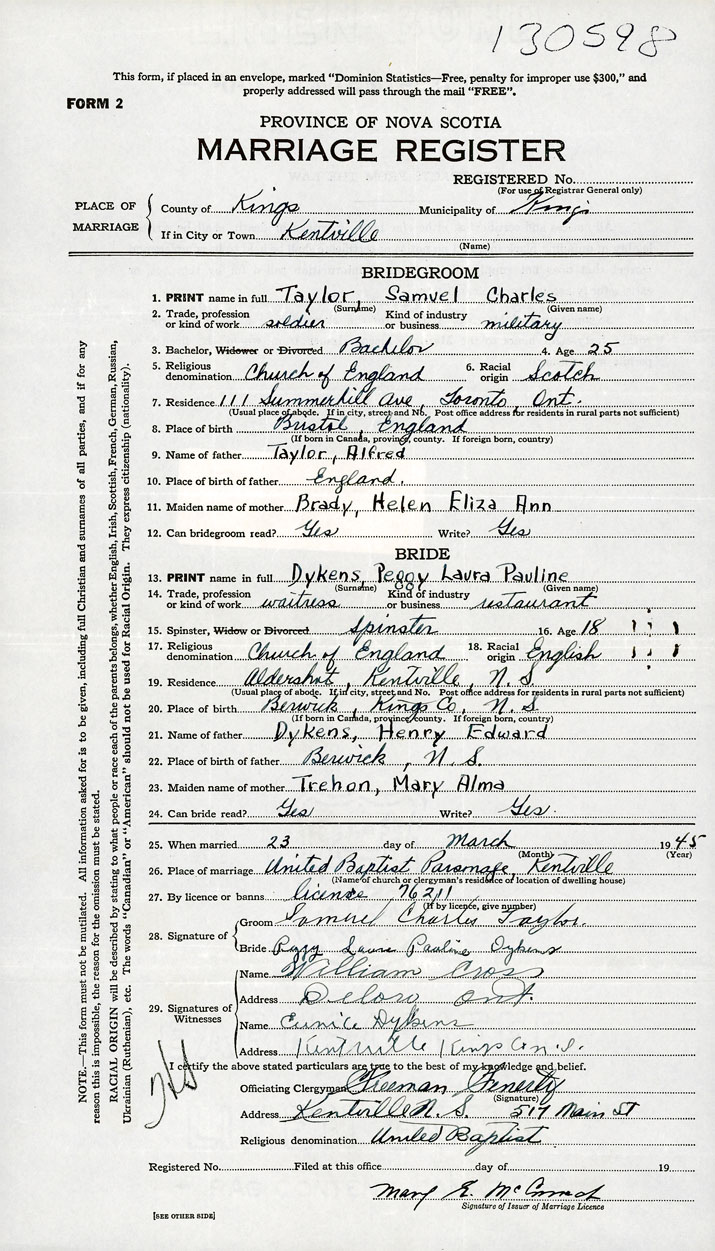 130598
This form, if placed in an envelope, marked "Dominion Statistics—Free, penalty for improper use $300," and
properly addressed will pass through the mail "FREE".
FORM 2
PROVINCE OF NOVA SCOTIA
MARRIAGE REGISTER
REGISTERED No.
(For use of Registrar General only)
PLACE OF MARRIAGE
County of Kings Municipality of Kings
If in City or Town Kentville
(Name)
BRIDEGROOM
1. PRINT name in full Taylor, Samuel Charles
(Surname) (Given name)
2. Trade, profession or kind of work soldier Kind of industry or business military
3. Bachelor, Widower or Divorced Bachelor 4. Age 25
5. Religious denomination Church of England 6. Racial origin Scotch
7. Residence 111 Summerhill Ave, Toronto, Ont.
(Usual place of abode. If in city, street and No. Post office address for residents in rural parts not sufficient)
8. Place of birth Bristol, England
(If born in Canada, province, county. If foreign born, country)
9. Name of father Taylor, Alfred
10. Place of birth of father England.
11. Maiden name of mother Brady, Helen Eliza Ann
12. Can bridegroom read? Yes Write? Yes
BRIDE
13. PRINT name in full Dykens, Peggy Laura Pauline
(Surname) (Given name)
14. Trade, profession or kind of work waitress Kind of industry or business restaurant
15. Spinster, Widow or Divorced Spinster 16. Age 18
17. Religious denomination Church of England 18. Racial origin English
19. Residence Aldershot, Kentville, N. S.
(Usual place of abode. If in city, street and No. Post office address for residents in rural parts not sufficient)
20. Place of birth Berwick, Kings Co, N. S.
(If born in Canada, province county. If foreign born, country)
21. Name of father Dykens, Henry Edward
22. Place of birth of father Berwick, N. S.
23. Maiden name of mother Trehon, Mary Alma
24. Can bride read? Yes Write? Yes.
25. When married 23 day of March 1945
(Month) (Year)
26. Place of marriage United Baptist Parsonage, Kentville
(Name of church or clergyman's residence or location of dwelling house)
27. By licence or banns license 76211
(If by licence, give number)
28. Signature of
Groom Samuel Charles Taylor.
Bride Peggy Laura Pauline Dykens
29. Signatures of Witnesses
Name William Cross
Address Deloro Ont.
Name Eunice Dykens
Address Kentville Kings Co N.S.
I certify the above stated particulars are true to the best of my knowledge and belief.
Officiating Clergyman Freeman Fenerty
(Signature)
Address Kentville N. S. 517 Main St
Religious denomination United Baptist
Registered No. Filed at this office day of 19
Mary E.
Signature of Issuer of Marriage Licence
[SEE OTHER SIDE]
NOTE.—This form must not be mutilated. All information asked for is to be given, including full Christian and surnames of all parties, and if for any
reason this is impossible, the reason for the emission must be stated.
RACIAL ORIGIN will be described by stating to what people or race each of the parents belongs, whether English, Irish, Scottish, French, German, Russian,
Ukrainian (Ruthenian), etc. The words "Canadian" or "American" should not be used for Racial Origin. They express citizenship (nationality).